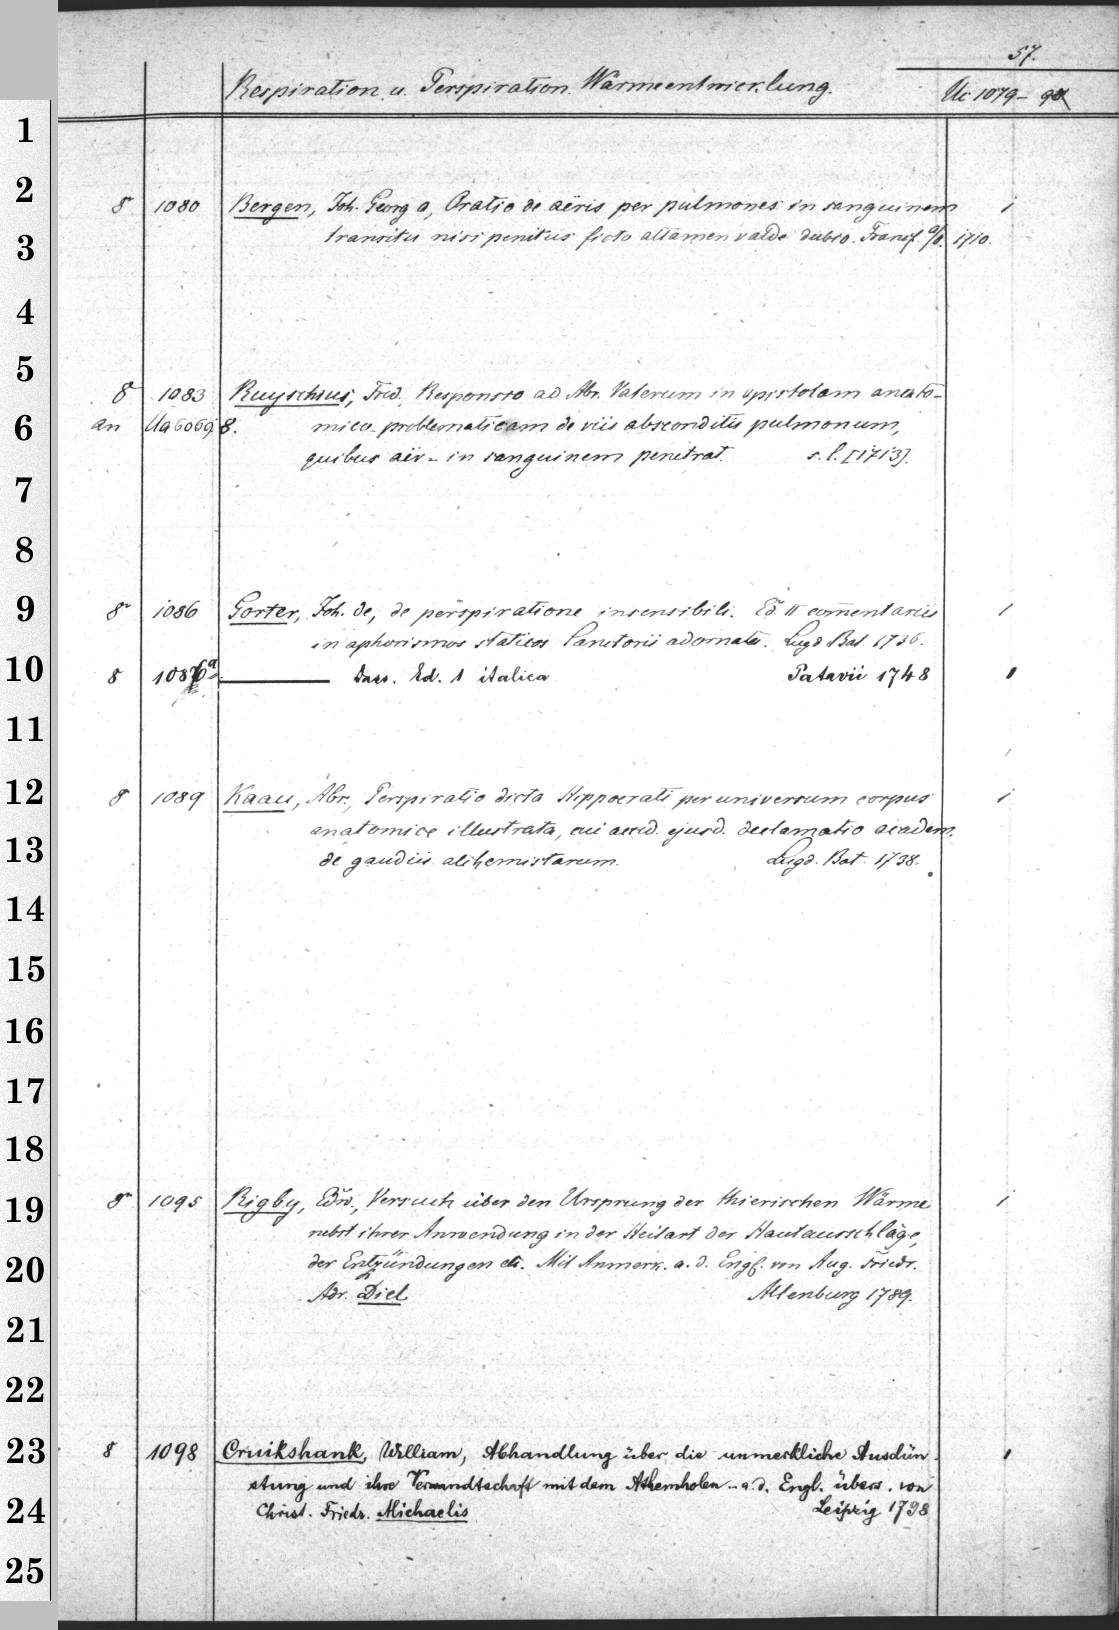 57.
Respiration u. Perspiration. Wärmeentwicklung. Uc 1079- 98
1
2
8° 1080 Bergen, Joh. Georg a, Oratio de aëris per pulmones in sanguinem 1
transitu nisi penitus ficto attamen valde dubio. Francf. a/O. 1710.
3
4
5
8° 1083 Ruyschius, Fred. Responsio ad Abr. Vaterum in epistolam anato-
6
an Ua 6069, 8. mico-problematicam de viis absconditis pulmonum,
quibus aër in sanguinem penetrat. s. l. [1713].
7
8
9
8° 1086 Gorter, Joh. de, de perspiratione insensibili. Ed. II commentariis 1
in aphorismos staticos Sanctorii adornata. Lugd Bat. 1736.
10
8 1086a Dass. Ed. 1 italica Patavii 1748 1
11
12
8 1089 Kaau, Abr., Perspiratio dicta Hippocrati per universum corpus 1
anatomice illustrata, cui accid. ejusd. declamatio academ.
13
de gaudiis alchemistarum. Lugd. Bat. 1738.
14
15
16
17
18
19
8° 1095 Rigby, Edw., Versuch über den Ursprung der thierischen Wärme 1
nebst ihrer Anwendung in der Heilart der Hautausschläge,
20
der Entzündungen etc. Mit Anmerk. a. d. Engl. von Aug. Friedr.
Adr. Diel Altenburg 1789.
21
22
23
8 1098 Cruikshank, William, Abhandlung über die unmerkliche Ausdün- 1
stung und ihre Verwandtschaft mit dem Athemholen - a. d. Engl. übers. von
24
Christ. Friedr. Michaelis Leipzig 1798
25